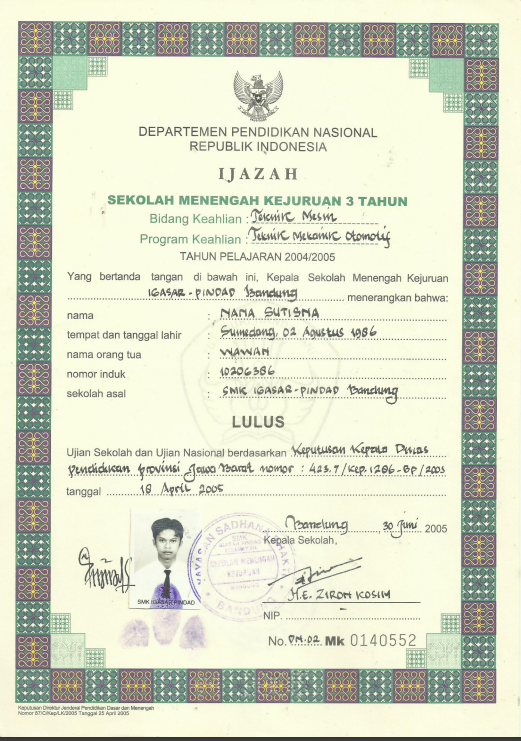 DEPARTEMEN PENDIDIKAN NASIONAL
REPUBLIK INDONESIA
IJAZAH
SEKOLAH MENENGAH KEJURUAN 3 TAHUN
Bidang Keahlian : Teknik Mesin
Program Keahlian : Teknik Mekanik Otomotif
TAHUN PELAJARAN 2004/2005
Yang bertanda tangan di bawah ini, Kepala Sekolah Menengah Kejuruan
IGASAR - PINDAD Bandung menerangkan bahwa:
nama : NANA SUTISNA
tempat dan tanggal lahir : Sumedang, 02 Agustus 1986
nama orang tua : WAWAN
nomor induk : 10206386
sekolah asal : SMK IGASAR-PINDAD Bandung
LULUS
Ujian Sekolah dan Ujian Nasional berdasarkan Keputusan Kepala Dinas
Pendidikan Provinsi Jawa Barat nomor : 423.7/Kep.1286-BP/2005
tanggal 18 April 2005
Bandung, 30 Juni 2005
Kepala Sekolah,
YAYASAN SADHANA
SMK
SEKOLAH MENENGAH
KEJURUAN
BANDUNG
SMK IGASAR PINDAD
H.E. ZIROM KOSIM
NIP.
No. DN-02 Mk 0140552
Keputusan Direktur Jenderal Pendidikan Dasar dan Menengah
Nomor 87/C/Kep/LK/2005 Tanggal 25 April 2005